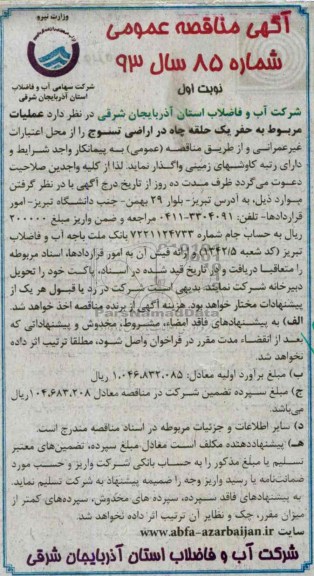 وزارت نیرو
شرکت سهامی آب و فاضلاب
استان آذربایجان شرقی
آگهی مناقصه عمومی
شماره ۸۵ سال ۹۳
نوبت اول
شرکت آب و فاضلاب استان آذربایجان شرقی در نظر دارد عملیات
مربوط به حفر یک حلقه چاه در اراضی تسوج را از محل اعتبارات
غیرعمرانی و از طریق مناقصه (عمومی) به پیمانکار واجد شرایط و
دارای رتبه کاوشهای زمینی واگذار نماید. لذا از کلیه واجدین صلاحیت
دعوت می‌گردد ظرف مدت ده روز از تاریخ درج آگهی با در نظر گرفتن
موارد ذیل، به آدرس تبریز- بلوار ۲۹ بهمن- جنب دانشگاه تبریز- امور
قراردادها- تلفن: ۳۳۰۴۰۹۱-۰۴۱۱ مراجعه و ضمن واریز مبلغ ۲۰۰۰۰۰
ریال به حساب جام شماره ۷۲۲۱۱۲۴۷۳۳ بانک ملت باجه آب و فاضلاب
تبریز (کد شعبه ۶۳۴۲/۵) و ارائه فیش آن به امور قراردادها، اسناد مربوطه
را متعاقبا دریافت و از تاریخ قید شده در اسناد، پاکت خود را تحویل
دبیرخانه شرکت نمایند. بدیهی است شرکت در رد یا قبول هر یک از
پیشنهادات مختار خواهد بود. هزینه آگهی از برنده مناقصه اخذ خواهد شد.
الف) به پیشنهادهای فاقد امضاء، مشروط، مخدوش و پیشنهاداتی که
بعد از انقضاء مدت مقرر در فراخوان واصل شود، مطلقا ترتیب اثر داده
نخواهد شد.
ب) مبلغ برآورد اولیه معادل: ۱،۰۴۶،۸۳۲،۰۸۵ ریال
ج) مبلغ سپرده تضمین شرکت در مناقصه معادل ۱۰۴،۶۸۳،۲۰۸ریال
می‌باشد.
د) سایر اطلاعات و جزئیات مربوطه در اسناد مناقصه مندرج است.
هـ) پیشنهاددهنده مکلف است معادل مبلغ سپرده، تضمین‌های معتبر
تسلیم یا مبلغ مذکور را به حساب بانکی شرکت واریز و حسب مورد
ضمانت‌نامه یا رسید واریز وجه را ضمیمه پیشنهاد به شرکت تسلیم نماید.
به پیشنهادهای فاقد سپرده، سپرده های مخدوش، سپرده‌های کمتر از
میزان مقرر، چک و نظایر آن ترتیب اثر داده نخواهد شد.
سایت www.abfa-azarbaijan.ir
شرکت آب و فاضلاب استان آذربایجان شرقی